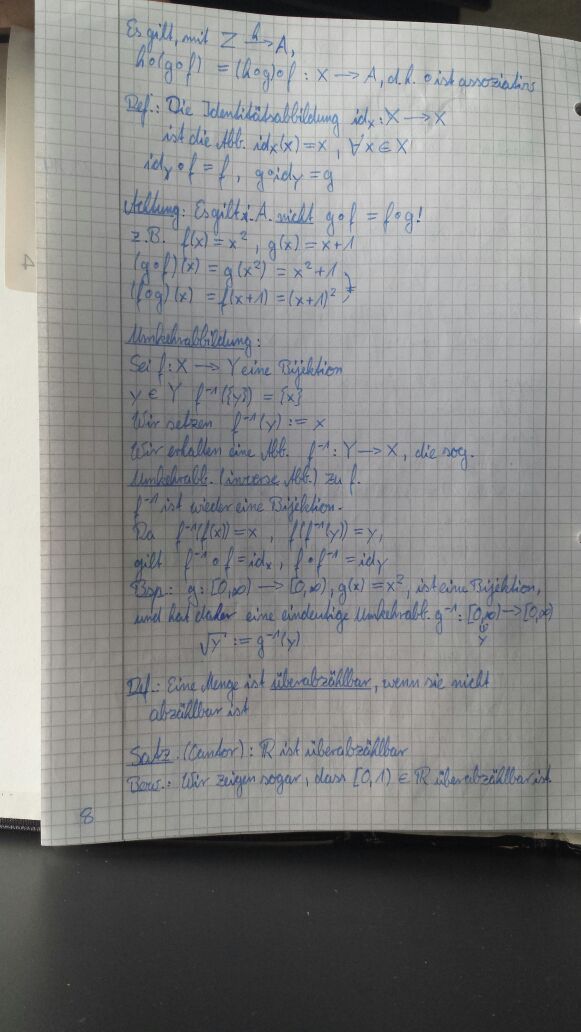 Es gilt, mit Z —h→ A,
h∘(g∘f) = (h∘g)∘f : X → A, d.h. ∘ ist assoziativ
Def.: Die Identitätsabbildung id_X : X → X
ist die Abb. id_X(x) = x , ∀x ∈ X
id_Y ∘ f = f , g∘id_Y = g
Achtung: Es gilt i. A. nicht g∘f = f∘g!
z.B. f(x) = x² , g(x) = x+1
(g∘f)(x) = g(x²) = x²+1
(f∘g)(x) = f(x+1) = (x+1)² ≠
Umkehrabbildung:
Sei f: X → Y eine Bijektion
y ∈ Y f⁻¹({y}) = {x}
Wir setzen f⁻¹(y) := x
Wir erhalten eine Abb. f⁻¹: Y → X, die sog.
Umkehrabb. (inverse Abb.) zu f.
f⁻¹ ist wieder eine Bijektion.
Da f⁻¹(f(x)) = x , f(f⁻¹(y)) = y,
gilt f⁻¹∘f = id_X , f∘f⁻¹ = id_Y
Bsp.: g: [0,∞) → [0,∞), g(x) = x², ist eine Bijektion,
und hat daher eine eindeutige Umkehrabb. g⁻¹: [0,∞) → [0,∞)
√y := g⁻¹(y) y
Def.: Eine Menge ist überabzählbar, wenn sie nicht
abzählbar ist
Satz (Cantor): ℝ ist überabzählbar
Bew.: Wir zeigen sogar, dass [0,1) ∈ ℝ überabzählbar ist.
8
4